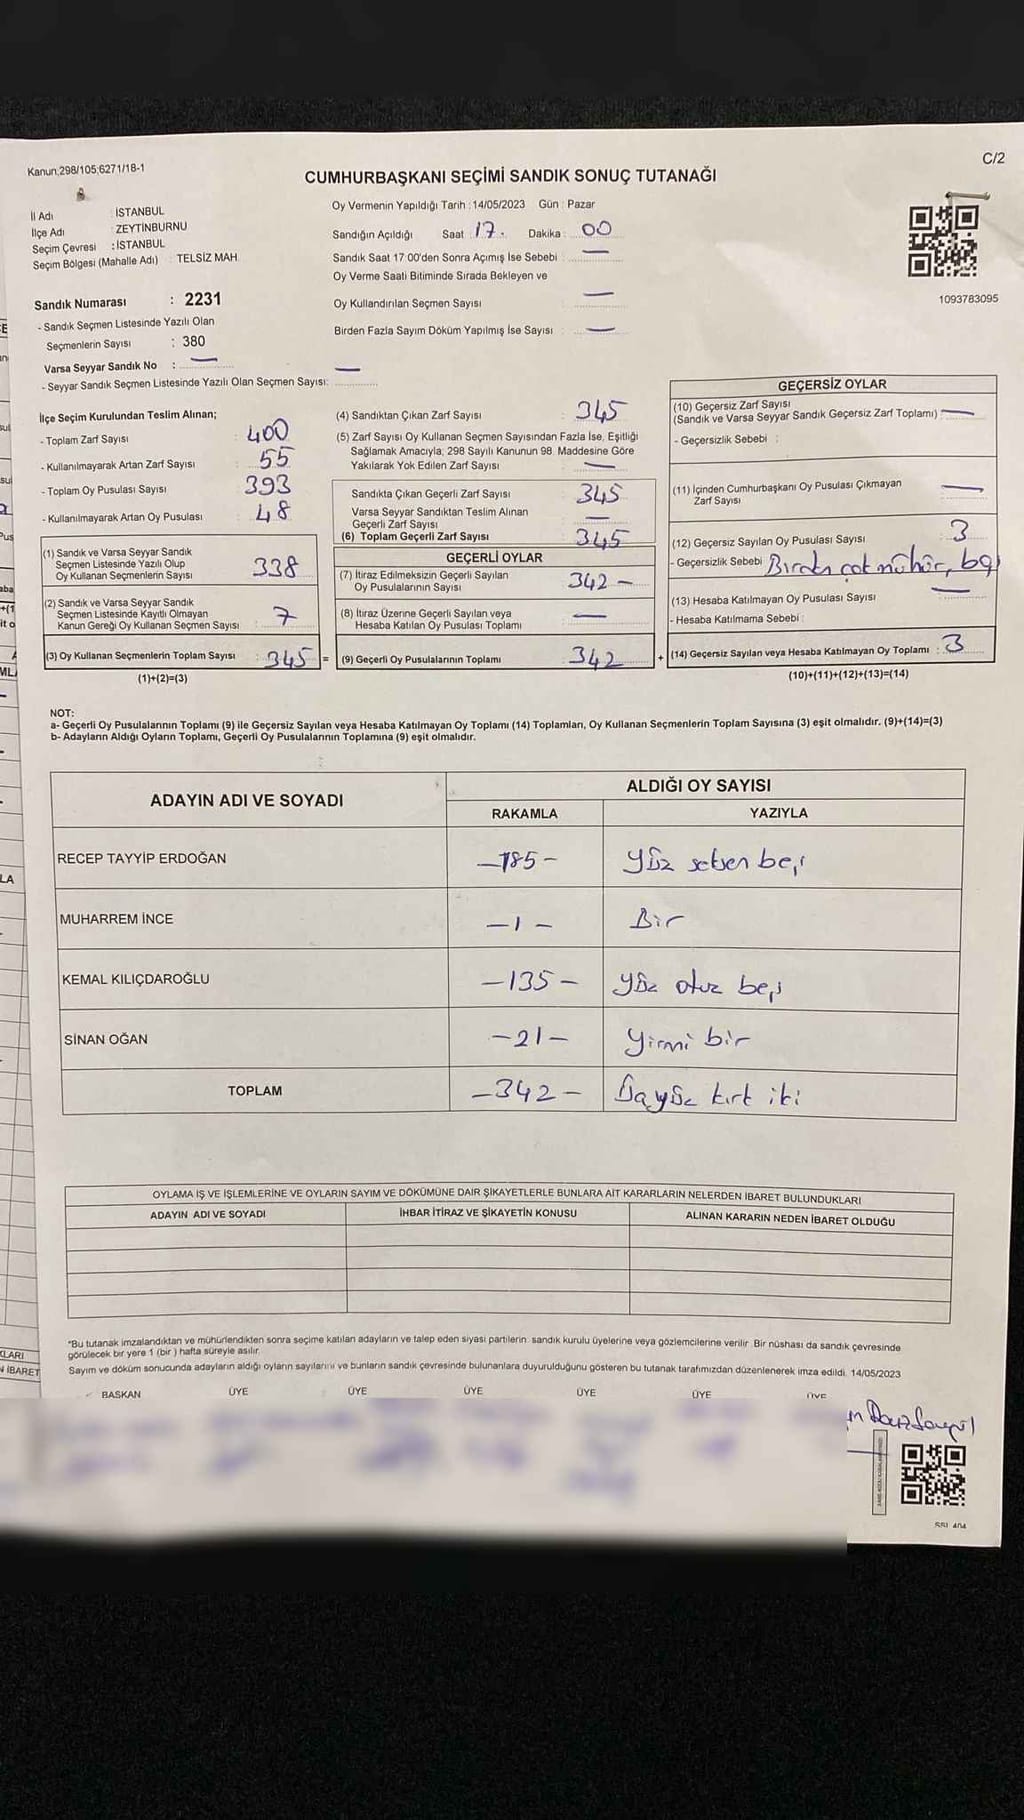 Kanun;298/105;6271/18-1
C/2
CUMHURBAŞKANI SEÇİMİ SANDIK SONUÇ TUTANAĞI
İl Adı : İSTANBUL
İlçe Adı : ZEYTİNBURNU
Seçim Çevresi : İSTANBUL
Seçim Bölgesi (Mahalle Adı) : TELSİZ MAH.
Oy Vermenin Yapıldığı Tarih : 14/05/2023 Gün : Pazar
Sandığın Açıldığı Saat : 17. Dakika : 00
Sandık Saat 17:00'den Sonra Açımış İse Sebebi : —
Oy Verme Saati Bitiminde Sırada Bekleyen ve
Oy Kullandırılan Seçmen Sayısı —
Birden Fazla Sayım Döküm Yapılmış İse Sayısı : —
1093783095
Sandık Numarası : 2231
- Sandık Seçmen Listesinde Yazılı Olan
Seçmenlerin Sayısı : 380
Varsa Seyyar Sandık No : —
- Seyyar Sandık Seçmen Listesinde Yazılı Olan Seçmen Sayısı: —
İlçe Seçim Kurulundan Teslim Alınan;
- Toplam Zarf Sayısı : 400
- Kullanılmayarak Artan Zarf Sayısı : 55
- Toplam Oy Pusulası Sayısı : 393
- Kullanılmayarak Artan Oy Pusulası : 48
(1) Sandık ve Varsa Seyyar Sandık
Seçmen Listesinde Yazılı Olup
Oy Kullanan Seçmenlerin Sayısı : 338
(2) Sandık ve Varsa Seyyar Sandık
Seçmen Listesinde Kayıtlı Olmayan
Kanun Gereği Oy Kullanan Seçmen Sayısı : 7
(3) Oy Kullanan Seçmenlerin Toplam Sayısı : 345 =
(1)+(2)=(3)
(4) Sandıktan Çıkan Zarf Sayısı : 345
(5) Zarf Sayısı Oy Kullanan Seçmen Sayısından Fazla İse, Eşitliği
Sağlamak Amacıyla; 298 Sayılı Kanunun 98. Maddesine Göre
Yakılarak Yok Edilen Zarf Sayısı : —
Sandıkta Çıkan Geçerli Zarf Sayısı : 345
Varsa Seyyar Sandıktan Teslim Alınan
Geçerli Zarf Sayısı : —
(6) Toplam Geçerli Zarf Sayısı : 345
GEÇERLİ OYLAR
(7) İtiraz Edilmeksizin Geçerli Sayılan
Oy Pusulalarının Sayısı : 342 —
(8) İtiraz Üzerine Geçerli Sayılan veya
Hesaba Katılan Oy Pusulası Toplamı : —
(9) Geçerli Oy Pusulalarının Toplamı : 342 +
GEÇERSİZ OYLAR
(10) Geçersiz Zarf Sayısı
(Sandık ve Varsa Seyyar Sandık Geçersiz Zarf Toplamı) : —
- Geçersizlik Sebebi :
(11) İçinden Cumhurbaşkanı Oy Pusulası Çıkmayan
Zarf Sayısı : —
(12) Geçersiz Sayılan Oy Pusulası Sayısı : 3
- Geçersizlik Sebebi : Birden çok mühür,
(13) Hesaba Katılmayan Oy Pusulası Sayısı : —
- Hesaba Katılmama Sebebi :
(14) Geçersiz Sayılan veya Hesaba Katılmayan Oy Toplamı : 3
(10)+(11)+(12)+(13)=(14)
NOT:
a- Geçerli Oy Pusulalarının Toplamı (9) ile Geçersiz Sayılan veya Hesaba Katılmayan Oy Toplamı (14) Toplamları, Oy Kullanan Seçmenlerin Toplam Sayısına (3) eşit olmalıdır. (9)+(14)=(3)
b- Adayların Aldığı Oyların Toplamı, Geçerli Oy Pusulalarının Toplamına (9) eşit olmalıdır.
ADAYIN ADI VE SOYADI ALDIĞI OY SAYISI
RAKAMLA YAZIYLA
RECEP TAYYİP ERDOĞAN —185— Yüz seksen beş
MUHARREM İNCE —1— Bir
KEMAL KILIÇDAROĞLU —135— Yüz otuz beş
SİNAN OĞAN —21— Yirmi bir
TOPLAM —342— Üçyüz kırk iki
OYLAMA İŞ VE İŞLEMLERİNE VE OYLARIN SAYIM VE DÖKÜMÜNE DAİR ŞİKAYETLERLE BUNLARA AİT KARARLARIN NELERDEN İBARET BULUNDUKLARI
ADAYIN ADI VE SOYADI İHBAR İTİRAZ VE ŞİKAYETİN KONUSU ALINAN KARARIN NEDEN İBARET OLDUĞU
*Bu tutanak imzalandıktan ve mühürlendikten sonra seçime katılan adayların ve talep eden siyasi partilerin; sandık kurulu üyelerine veya gözlemcilerine verilir. Bir nüshası da sandık çevresinde
görülecek bir yere 1 (bir ) hafta süreyle asılır.
Sayım ve döküm sonucunda adayların aldığı oyların sayılarını ve bunların sandık çevresinde bulunanlara duyurulduğunu gösteren bu tutanak tarafımızdan düzenlenerek imza edildi. 14/05/2023
BAŞKAN ÜYE ÜYE ÜYE ÜYE ÜYE ÜYE